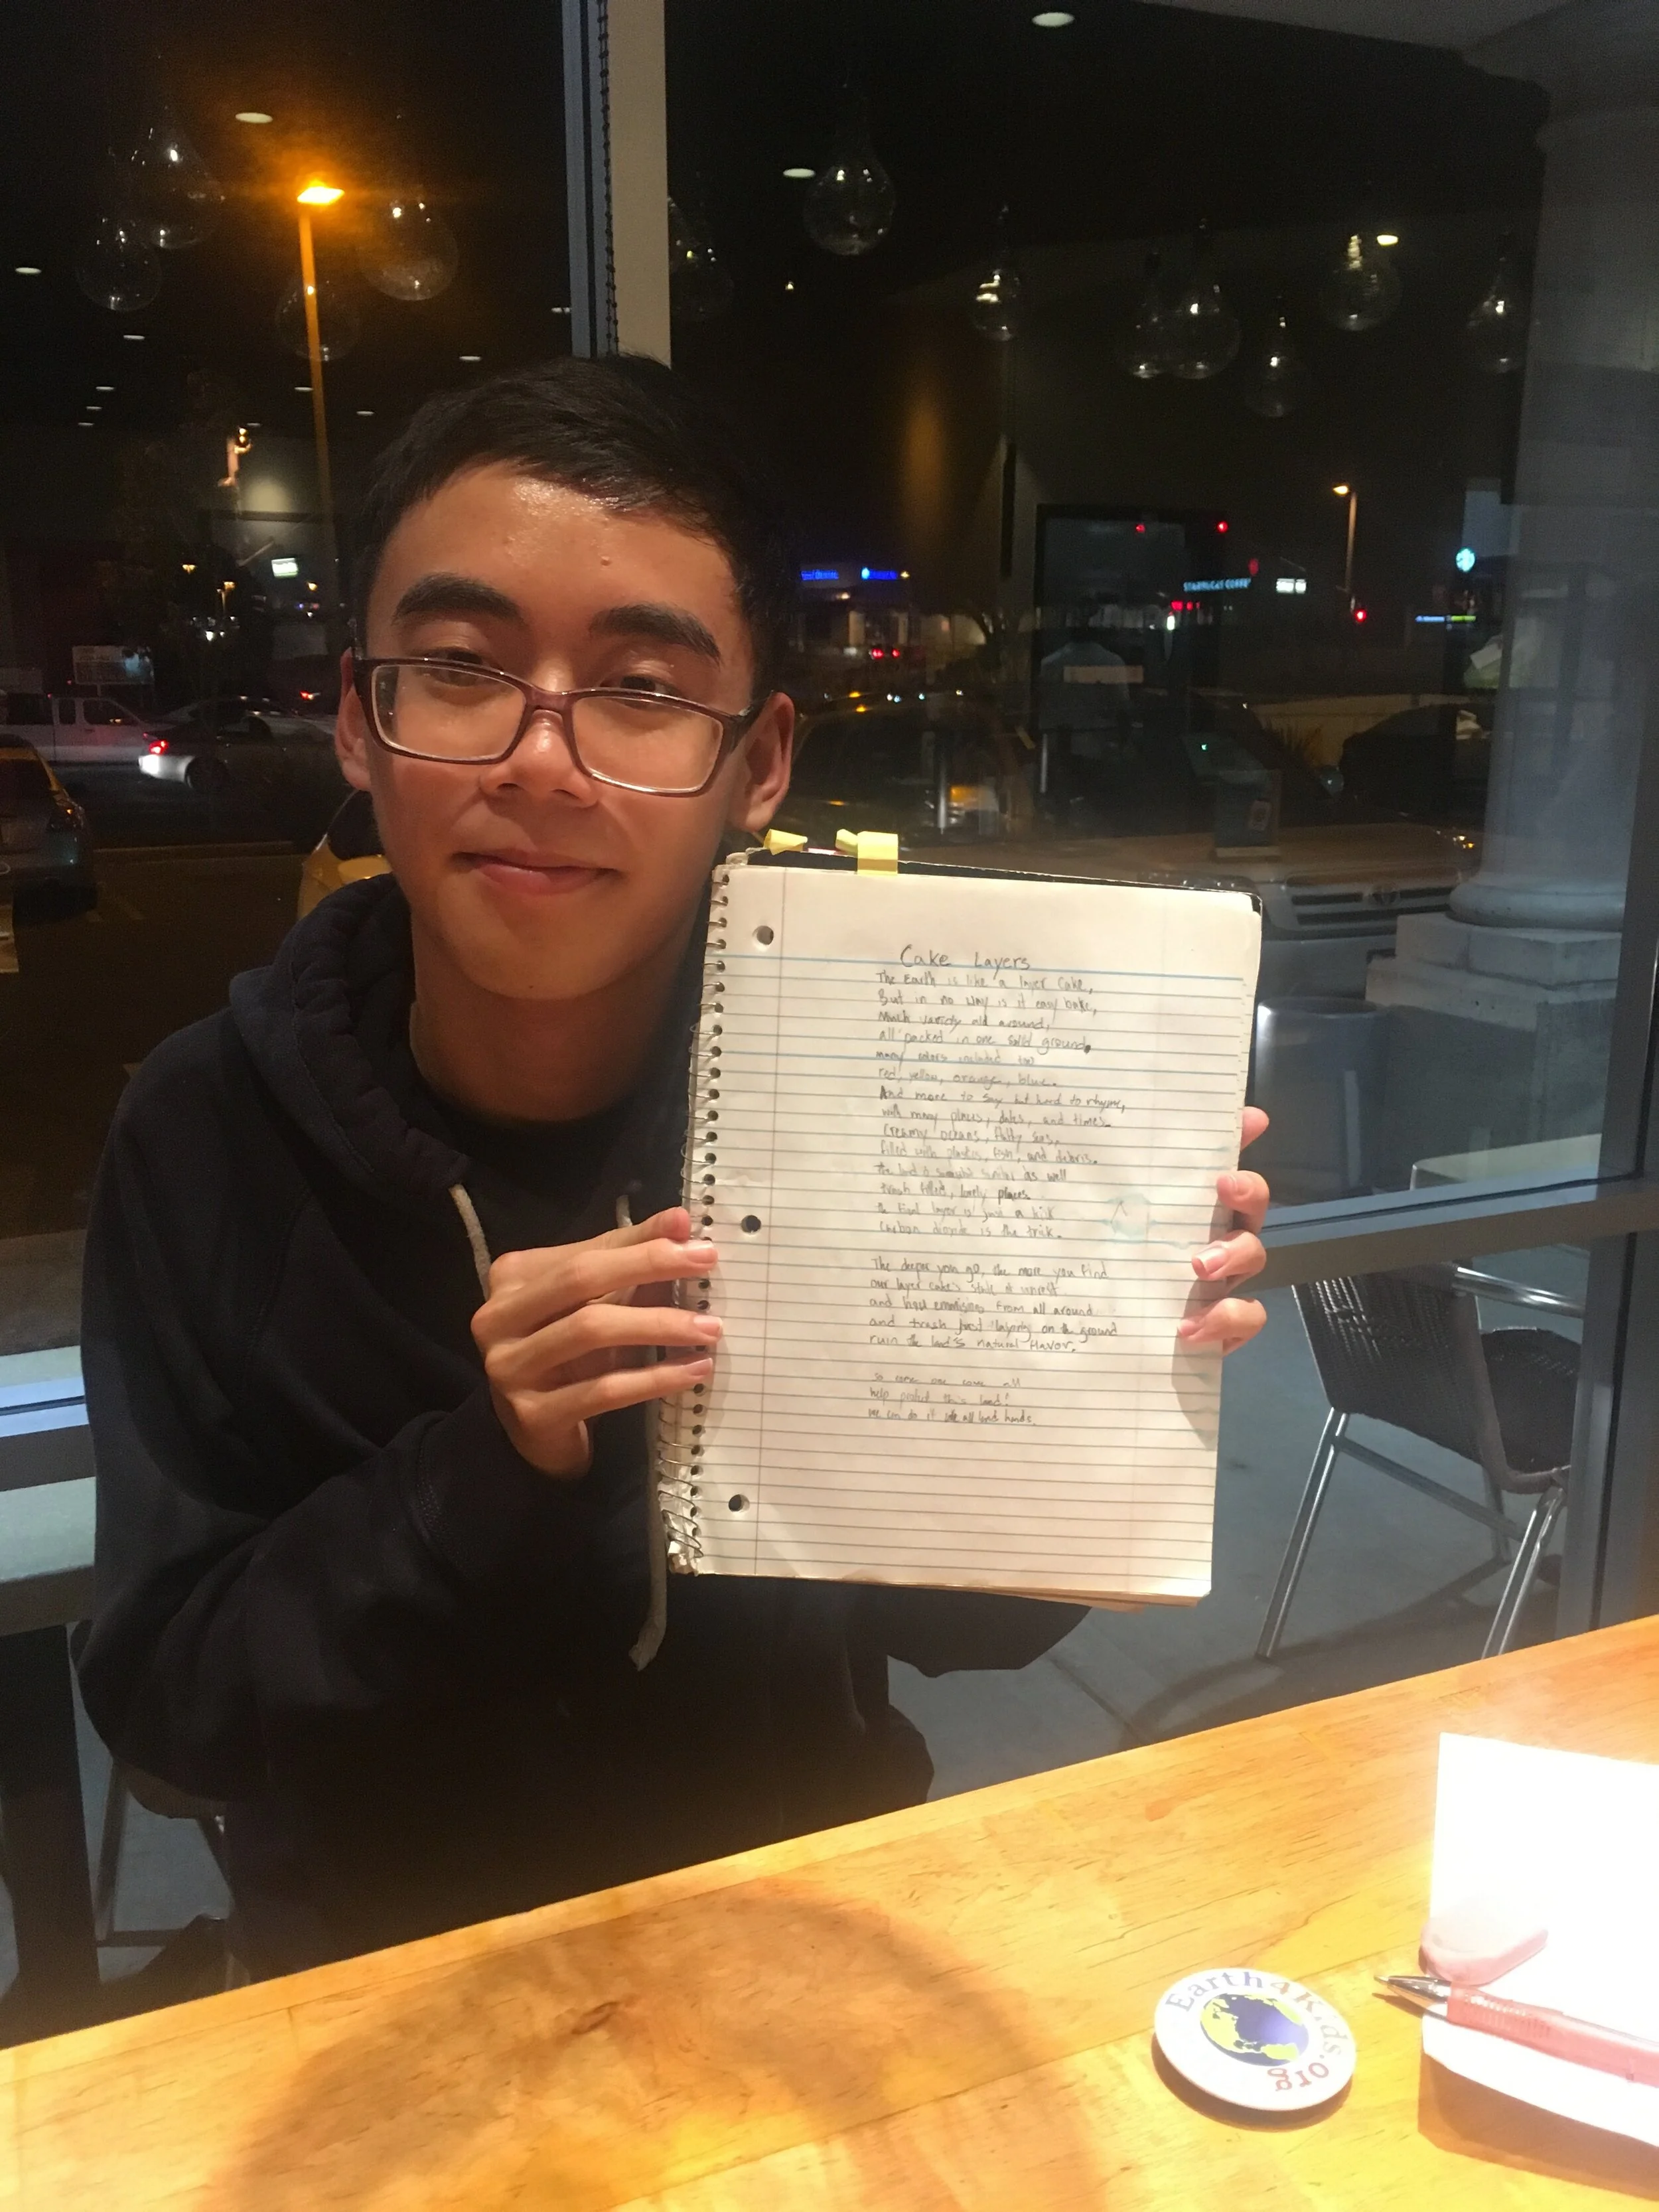 STARBUCKS COFFEE
Cake Layers
The Earth is like a layer cake,
But in no way is it easy bake,
Much variety all around,
all packed in one solid ground.
many colors included too
red, yellow, orange, blue.
And more to say but hard to rhyme,
with many places, dates, and times.
Creamy oceans, seas,
filled with plastics, fish, and debris.
the land is similar as well
trash filled, lonely places
the layer is just a
Carbon dioxide is the trick.
The deeper you go, the more you find
our layer cake's state of unrest
and from all around
and trash just laying on the ground
ruin the land's natural flavor.
So come one come all
help protect this land!
we can do it all lend hands.
Earth4Kids.org